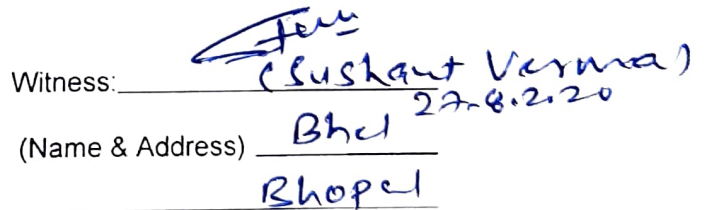 Witness: (Sushant Verma)
27.8.2020
(Name & Address) Bhel
Bhopal